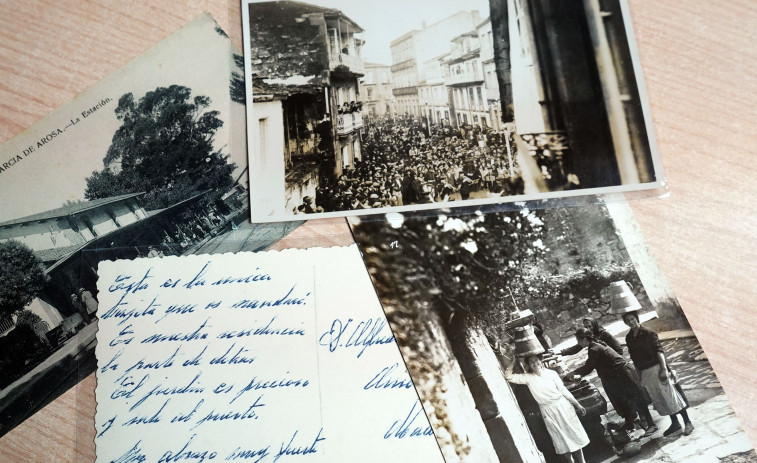 ARCIA DE AROSA.—La Estación.
Esta es la unica
tarjeta que os mandará.
Es nuestra residencia
la parte de detrás
El jardin es precioso
y sale al puerto.
Un abrazo muy fuerte
D. Alfred